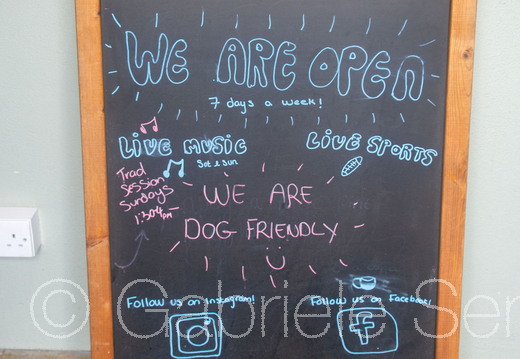 WE ARE OPEN
7 days a week!
LIVE MUSIC
Sat & Sun
LIVE SPORTS
Trad
Session
Sundays
WE ARE
DOG FRIENDLY
Follow us on Instagram!
Follow us on Facebook!
f
© Gabriele Ser